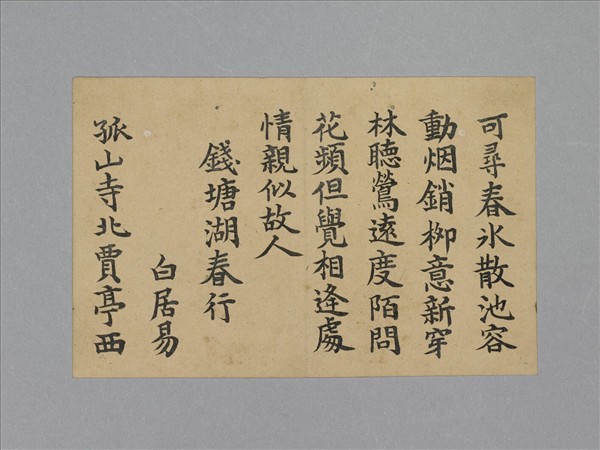 可尋春氷散池容
動烟銷栁意新穿
林聽鶯遠度陌問
花頻但覺相逢處
情親似故人
錢塘湖春行
白居易
孤山寺北賈亭西